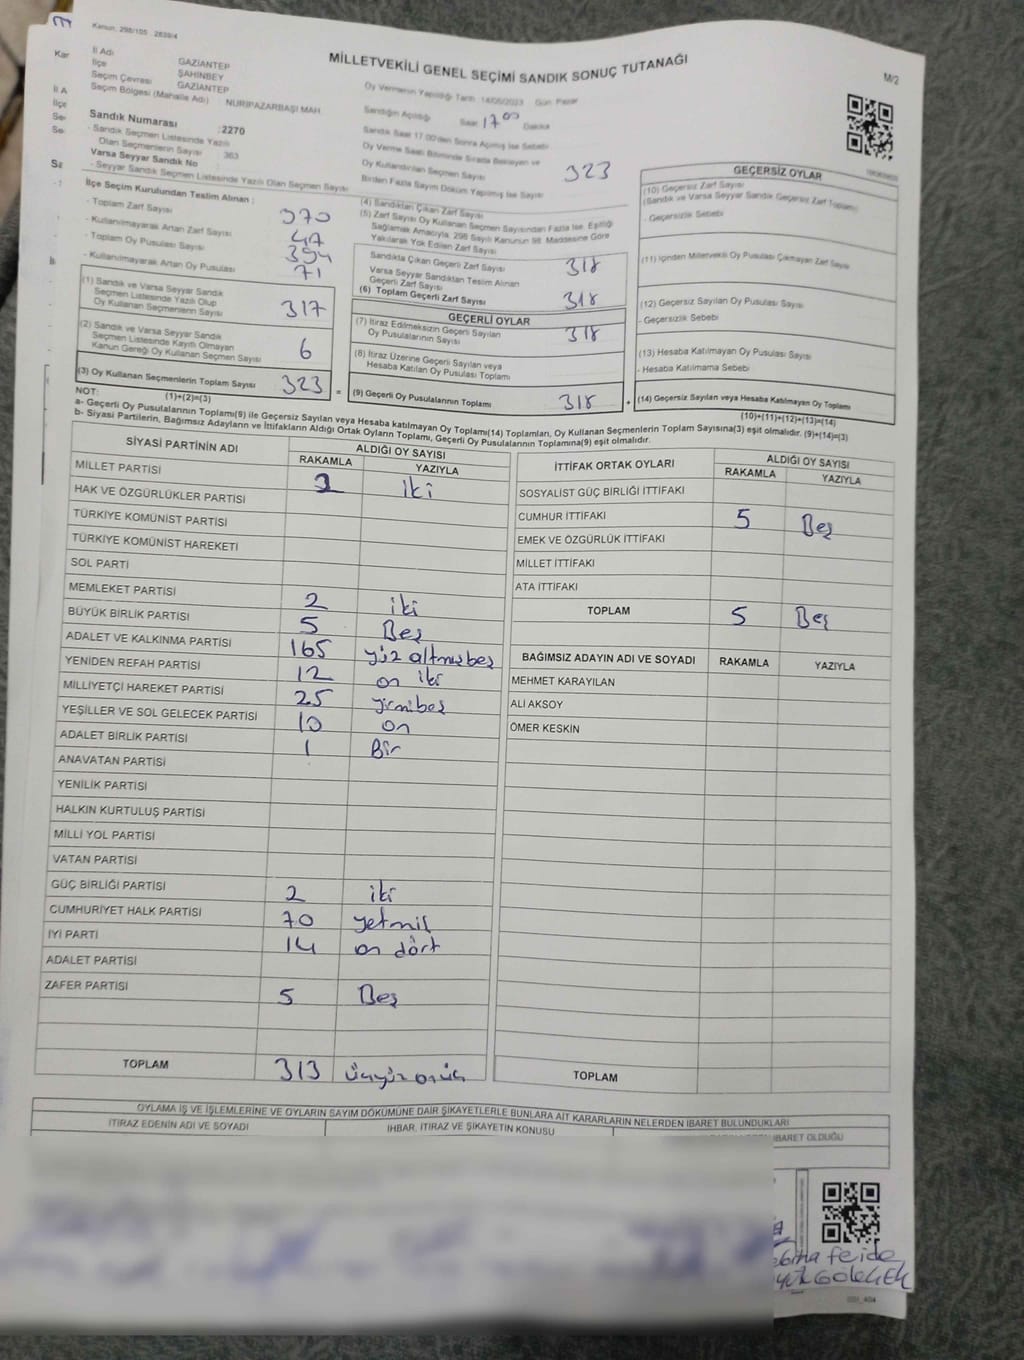 Kanun: 298/105 2839/4
MİLLETVEKİLİ GENEL SEÇİMİ SANDIK SONUÇ TUTANAĞI
M/2
İl Adı GAZİANTEP
İlçe ŞAHİNBEY
Seçim Çevresi GAZİANTEP
Seçim Bölgesi (Mahalle Adı) NURİPAZARBAŞI MAH.
Sandık Numarası : 2270
- Sandık Seçmen Listesinde Yazılı
Olan Seçmenlerin Sayısı : 363
Varsa Seyyar Sandık No
- Seyyar Sandık Seçmen Listesinde Yazılı Olan Seçmen Sayısı
Oy Vermenin Yapıldığı Tarih 14/05/2023 Gün Pazar
Sandığın Açıldığı Saat 17 00 Dakika
Sandık Saat 17:00'den Sonra Açılmış İse Sebebi
Oy Verme Saati Bitiminde Sırada Bekleyen ve
Oy Kullandırılan Seçmen Sayısı 323
Birden Fazla Sayım Döküm Yapılmış İse Sayısı
İlçe Seçim Kurulundan Teslim Alınan :
- Toplam Zarf Sayısı 370
- Kullanılmayarak Artan Zarf Sayısı 47
- Toplam Oy Pusulası Sayısı 394
- Kullanılmayarak Artan Oy Pusulası 71
(1) Sandık ve Varsa Seyyar Sandık
Seçmen Listesinde Yazılı Olup
Oy Kullanan Seçmenlerin Sayısı 317
(2) Sandık ve Varsa Seyyar Sandık
Seçmen Listesinde Kayıtlı Olmayan
Kanun Gereği Oy Kullanan Seçmen Sayısı 6
(3) Oy Kullanan Seçmenlerin Toplam Sayısı 323 =
(1)+(2)=(3)
(4) Sandıktan Çıkan Zarf Sayısı
(5) Zarf Sayısı Oy Kullanan Seçmen Sayısından Fazla İse, Eşitliği
Sağlamak Amacıyla, 298 Sayılı Kanunun 98. Maddesine Göre
Yakılarak Yok Edilen Zarf Sayısı
Sandıkta Çıkan Geçerli Zarf Sayısı 318
Varsa Seyyar Sandıktan Teslim Alınan
Geçerli Zarf Sayısı
(6) Toplam Geçerli Zarf Sayısı 318
GEÇERLİ OYLAR
(7) İtiraz Edilmeksizin Geçerli Sayılan
Oy Pusulalarının Sayısı 318
(8) İtiraz Üzerine Geçerli Sayılan veya
Hesaba Katılan Oy Pusulası Toplamı
(9) Geçerli Oy Pusulalarının Toplamı 318 +
GEÇERSİZ OYLAR
(10) Geçersiz Zarf Sayısı
(Sandık ve Varsa Seyyar Sandık Geçersiz Zarf Toplamı)
- Geçersizlik Sebebi
(11) İçinden Milletvekili Oy Pusulası Çıkmayan Zarf Sayısı
(12) Geçersiz Sayılan Oy Pusulası Sayısı
- Geçersizlik Sebebi
(13) Hesaba Katılmayan Oy Pusulası Sayısı
- Hesaba Katılmama Sebebi
(14) Geçersiz Sayılan veya Hesaba Katılmayan Oy Toplamı
(10)+(11)+(12)+(13)=(14)
NOT:
a- Geçerli Oy Pusulalarının Toplamı(9) ile Geçersiz Sayılan veya Hesaba katılmayan Oy Toplamı(14) Toplamları, Oy Kullanan Seçmenlerin Toplam Sayısına(3) eşit olmalıdır. (9)+(14)=(3)
b- Siyasi Partilerin, Bağımsız Adayların ve İttifakların Aldığı Ortak Oyların Toplamı, Geçerli Oy Pusulalarının Toplamına(9) eşit olmalıdır.
SİYASİ PARTİNİN ADI ALDIĞI OY SAYISI
RAKAMLA YAZIYLA
MİLLET PARTİSİ 2 iki
HAK VE ÖZGÜRLÜKLER PARTİSİ
TÜRKİYE KOMÜNİST PARTİSİ
TÜRKİYE KOMÜNİST HAREKETİ
SOL PARTİ
MEMLEKET PARTİSİ 2 iki
BÜYÜK BİRLİK PARTİSİ 5 Beş
ADALET VE KALKINMA PARTİSİ 165 yüz altmışbeş
YENİDEN REFAH PARTİSİ 12 on iki
MİLLİYETÇİ HAREKET PARTİSİ 25 yirmibeş
YEŞİLLER VE SOL GELECEK PARTİSİ 10 on
ADALET BİRLİK PARTİSİ 1 Bir
ANAVATAN PARTİSİ
YENİLİK PARTİSİ
HALKIN KURTULUŞ PARTİSİ
MİLLİ YOL PARTİSİ
VATAN PARTİSİ
GÜÇ BİRLİĞİ PARTİSİ 2 iki
CUMHURİYET HALK PARTİSİ 70 yetmiş
İYİ PARTİ 14 on dört
ADALET PARTİSİ
ZAFER PARTİSİ 5 Beş
TOPLAM 313 üçyüz onüç
İTTİFAK ORTAK OYLARI ALDIĞI OY SAYISI
RAKAMLA YAZIYLA
SOSYALİST GÜÇ BİRLİĞİ İTTİFAKI
CUMHUR İTTİFAKI 5 Beş
EMEK VE ÖZGÜRLÜK İTTİFAKI
MİLLET İTTİFAKI
ATA İTTİFAKI
TOPLAM 5 Beş
BAĞIMSIZ ADAYIN ADI VE SOYADI RAKAMLA YAZIYLA
MEHMET KARAYILAN
ALİ AKSOY
ÖMER KESKİN
TOPLAM
OYLAMA İŞ VE İŞLEMLERİNE VE OYLARIN SAYIM DÖKÜMÜNE DAİR ŞİKAYETLERLE BUNLARA AİT KARARLARIN NELERDEN İBARET BULUNDUKLARI
İTİRAZ EDENİN ADI VE SOYADI İHBAR, İTİRAZ VE ŞİKAYETİN KONUSU İBARET OLDUĞU